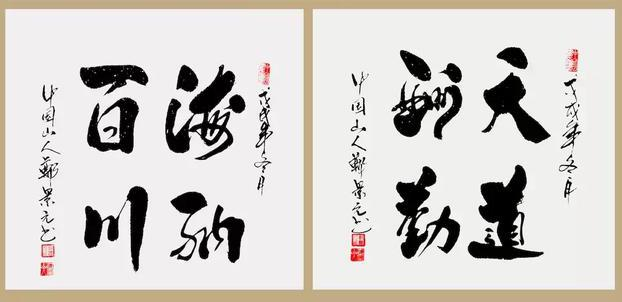 戊戌年冬月
海纳
百川
中国山人鄭景元书
戊戌年冬月
天道
酬勤
中国山人鄭景元书